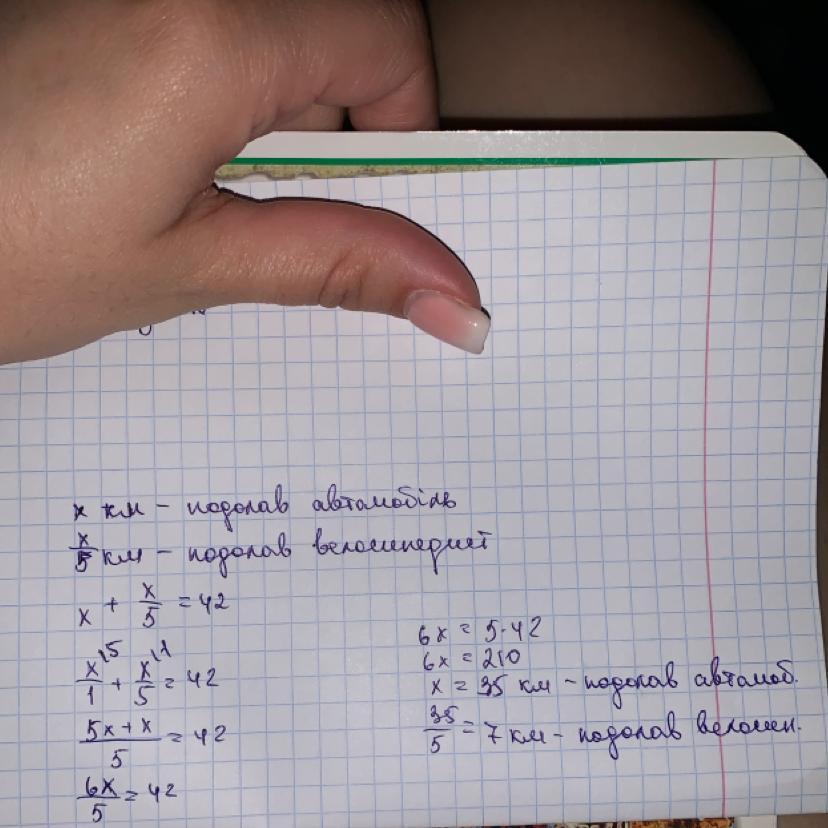 x км - подолав автомобіль
x/5 км - подолав велосипедист
x + x/5 = 42
x\5/1 + x\1/5 = 42
5x + x/5 = 42
6x/5 = 42
6x = 5·42
6x = 210
x = 35 км - подолав автомоб.
35/5 = 7 км - подолав велосип.